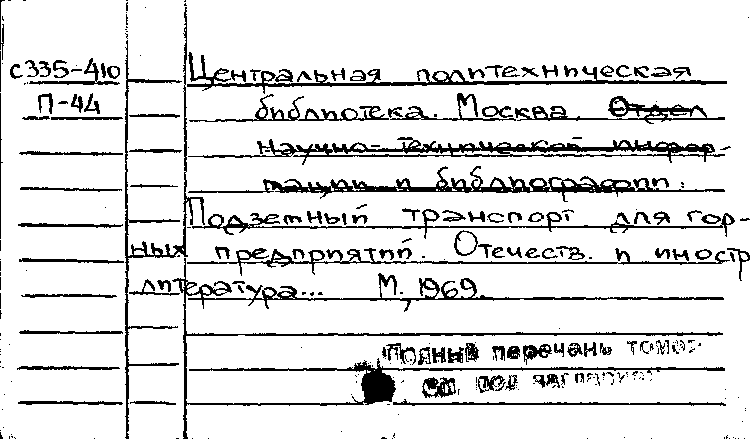 с335-410 Центральная политехническая
П-44 библиотека. Москва. Отдел
научно-технической инфор-
мации и библиографии.
Подземный транспорт для гор-
ных предприятий. Отечеств. и иностр
литература... М., 1969.
Полный перечень томов
см. под заглавием